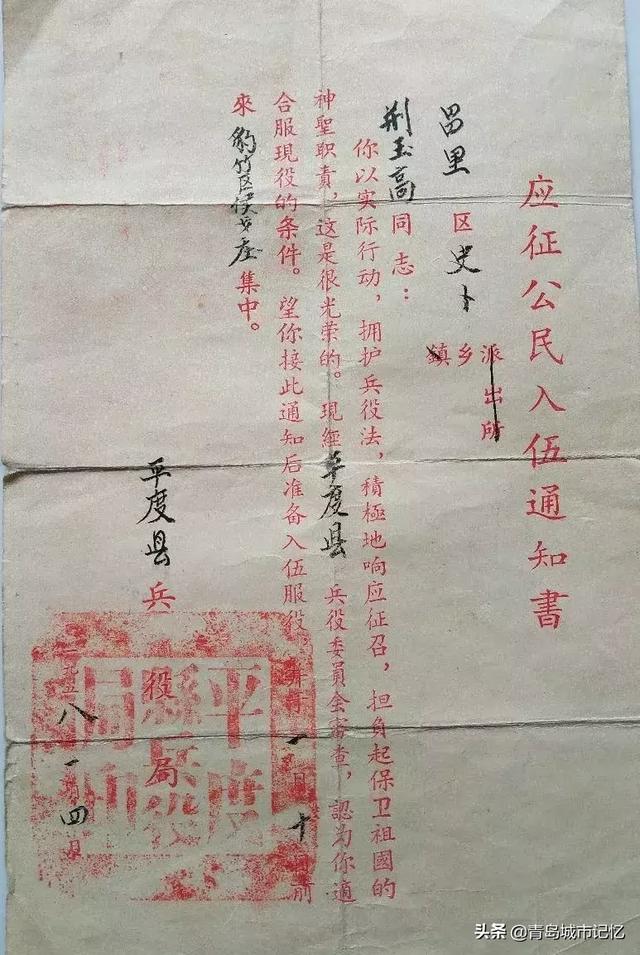 应征公民入伍通知書
昌里区史卜
派出所
乡
鎮
荆玉高同志：
你以实际行动，拥护兵役法，積極地响应征召，担負起保卫祖國的
神聖职責，这是很光荣的。現經平度县兵役委員会審查，認为你適
合服現役的条件。望你接此通知后准备入伍服役，并于一月十日前
來豹竹区集中。
平度县兵役局
一九五八年一月四日
平度縣兵役局印
头条 @青岛城市记忆